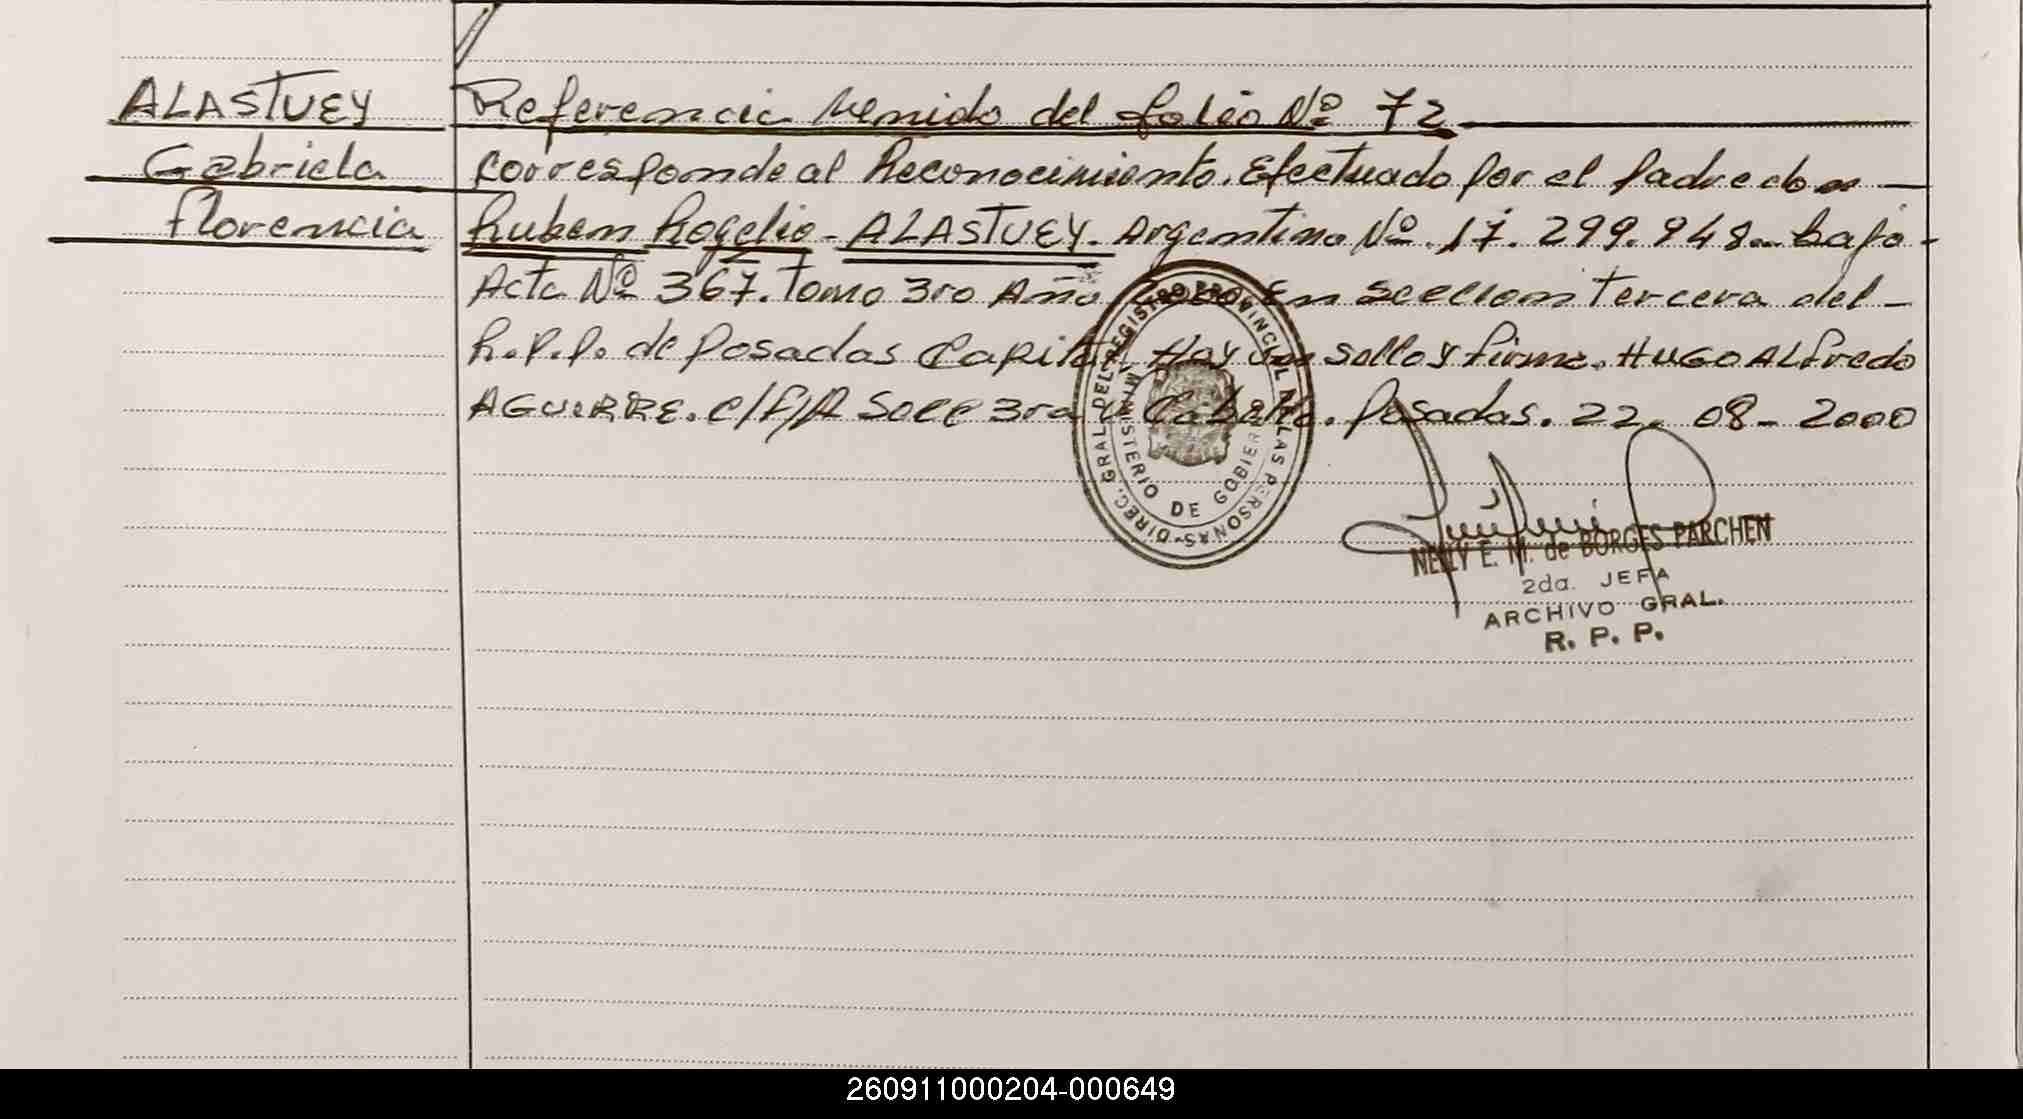 ALASTUEY
Gabriela
Florencia
Referencia Venido del folio Nº 72
Corresponde al Reconocimiento. Efectuado por el padre don
Ruben Rogelio - ALASTUEY. Argentino Nº 17.299.948 - bajo -
Acta Nº 367. Tomo 3ro Año En Seccion tercera del -
R.P.P. de Posadas Capital Hay un sello y firma. HUGO ALfredo
AGUIRRE. C/F/R Secc 3ra Posadas. 22 - 08 - 2000
DIREC. GRAL. DEL REGISTRO PROVINCIAL DE LAS PERSONAS -
MINISTERIO DE GOBIERNO
NELLY E. M. de BORGES PARCHEN
2da. JEFA
ARCHIVO GRAL.
R. P. P.
260911000204-000649